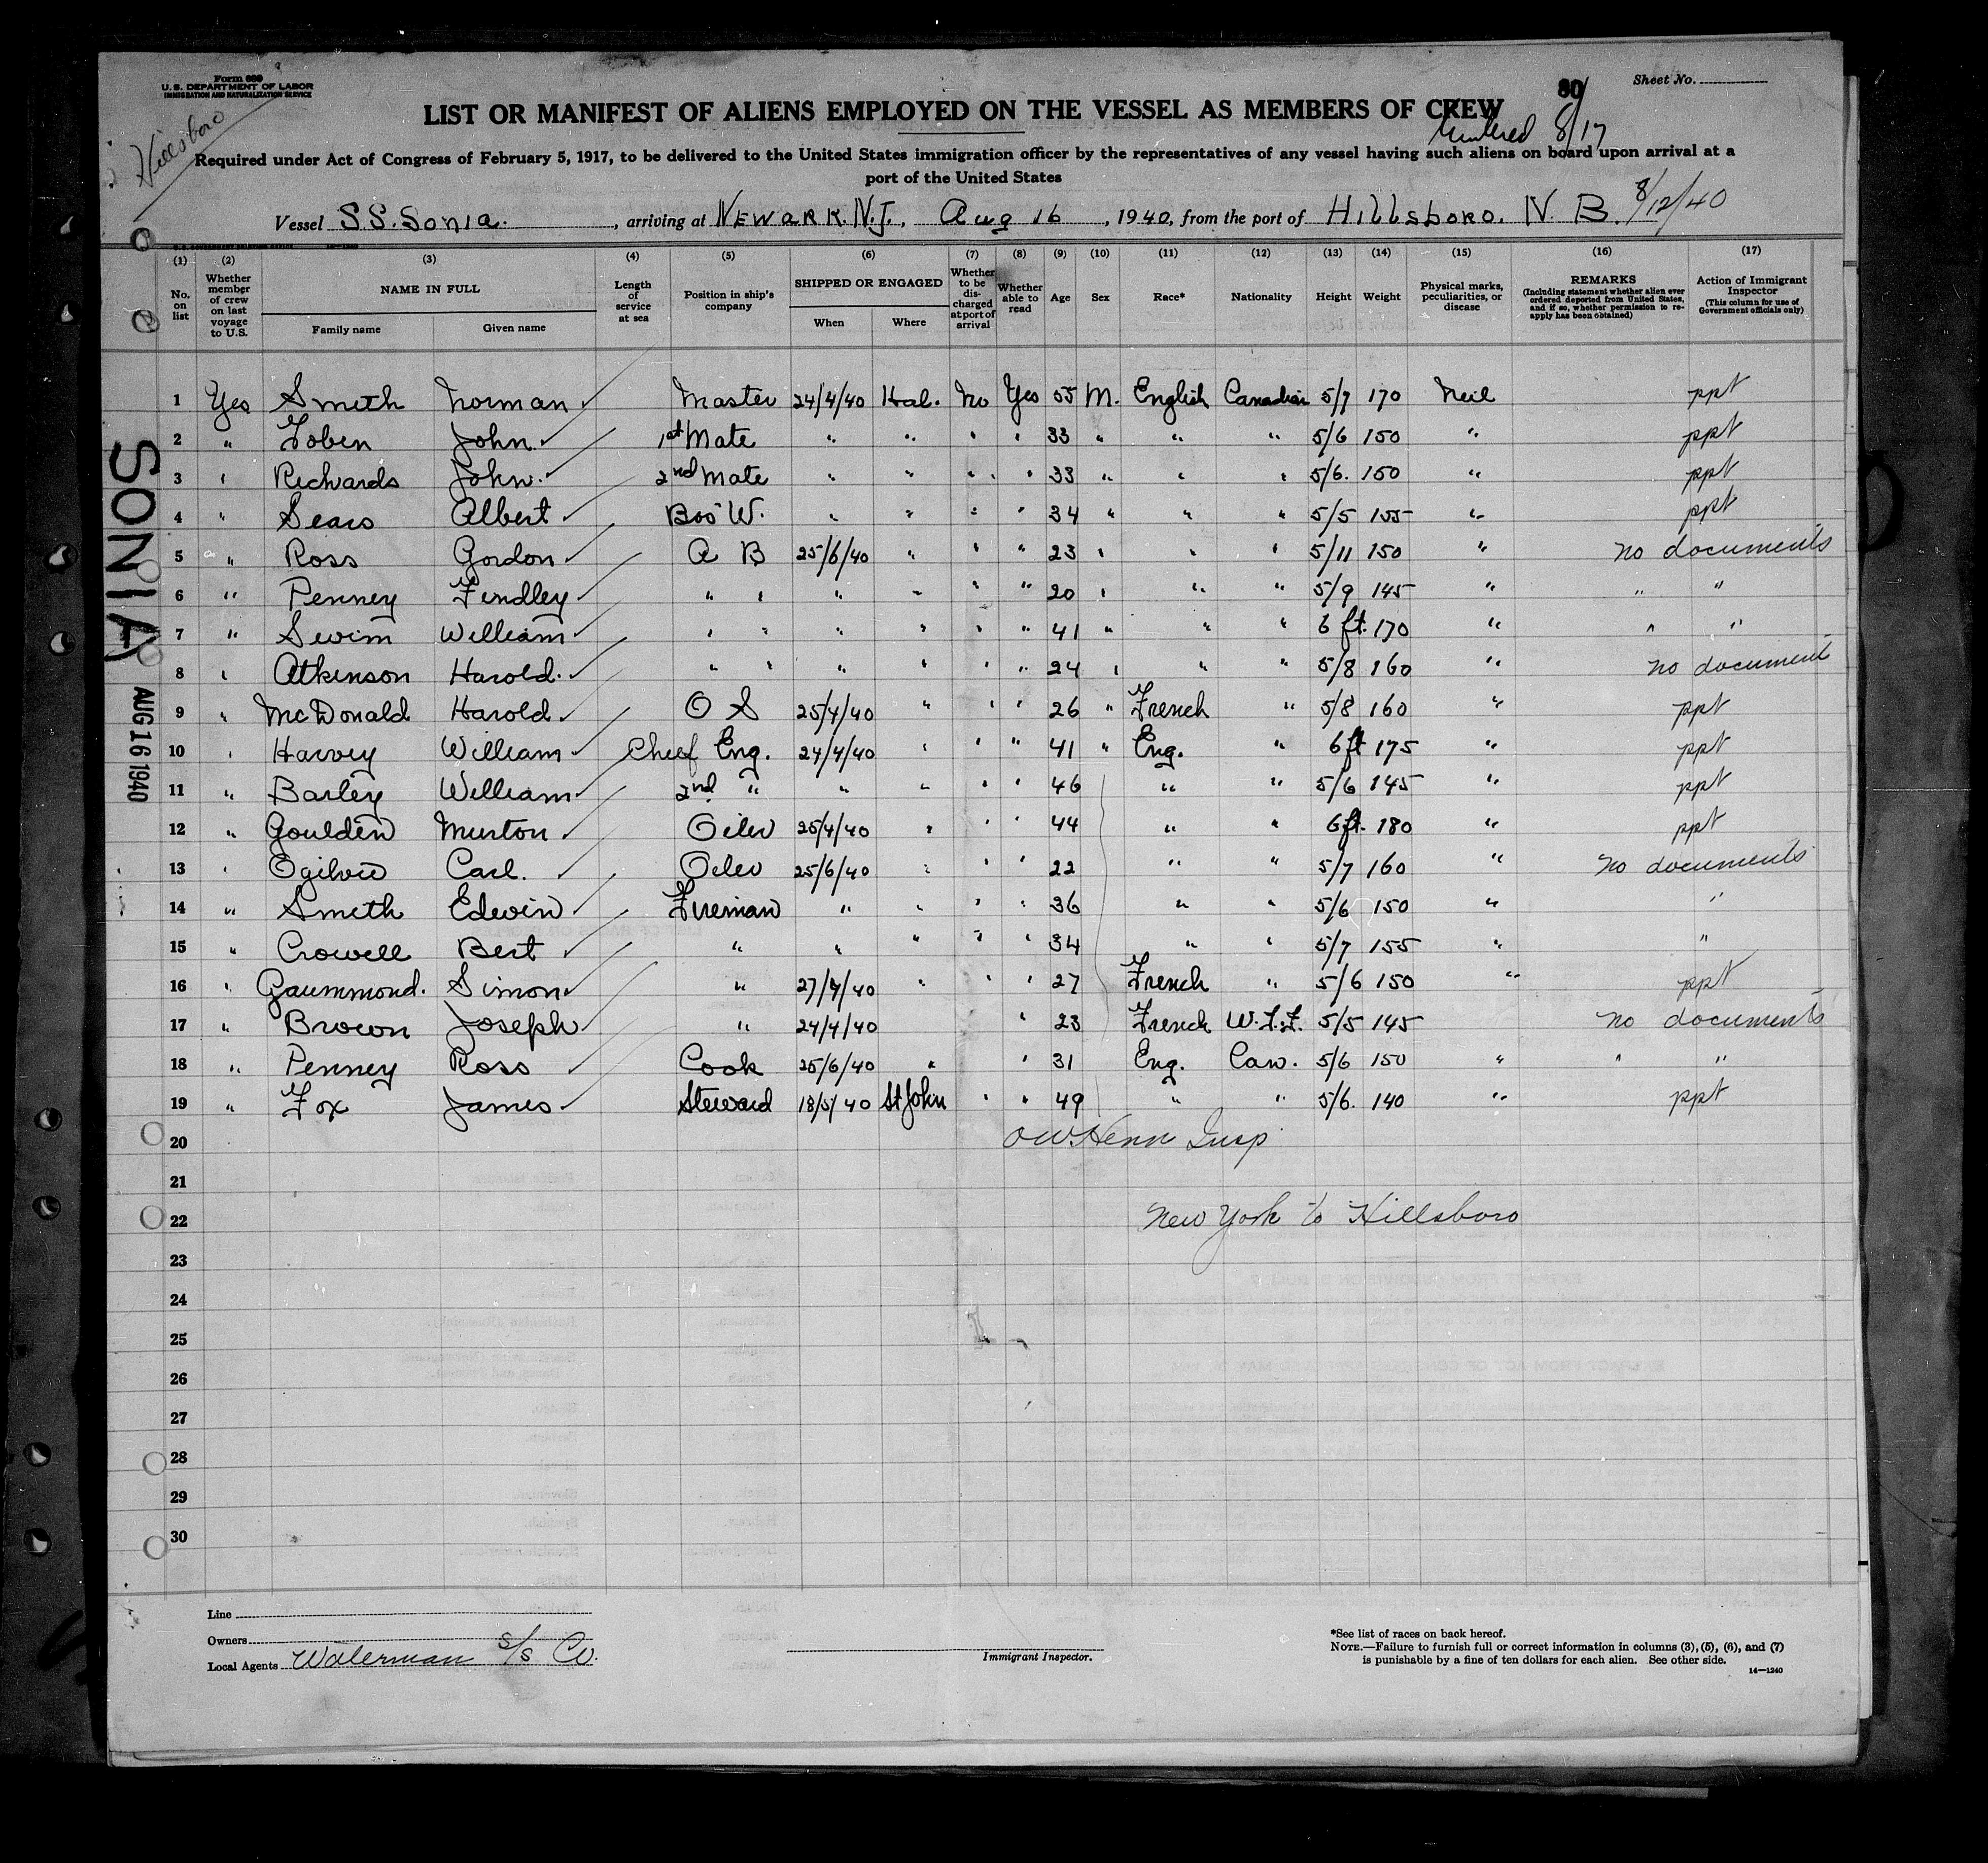 Form 689
U. S. DEPARTMENT OF LABOR
IMMIGRATION AND NATURALIZATION SERVICE
Hillsboro
80
Sheet No.
LIST OR MANIFEST OF ALIENS EMPLOYED ON THE VESSEL AS MEMBERS OF CREW
8/17
Required under Act of Congress of February 5, 1917, to be delivered to the United States immigration officer by the representatives of any vessel having such aliens on board upon arrival at a
port of the United States
Vessel S.S. Sonia. , arriving at Newark. N.J., Aug 16 , 1940, from the port of Hillsboro. N. B. 8/12/40
(1) (2) (3) (4) (5) (6) (7) (8) (9) (10) (11) (12) (13) (14) (15) (16) (17)
No. on list
Whether member of crew on last voyage to U.S.
NAME IN FULL
Family name Given name
Length of service at sea
Position in ship's company
SHIPPED OR ENGAGED
When Where
Whether to be discharged at port of arrival
Whether able to read
Age Sex Race* Nationality Height Weight
Physical marks, peculiarities, or disease
REMARKS
(Including statement whether alien ever ordered deported from United States, and if so, whether permission to reapply has been obtained)
Action of Immigrant Inspector
(This column for use of Government officials only)
1 Yes Smith Norman Master 24/4/40 Hal. No Yes 55 M. English Canadian 5/7 170 Neil ppt
2 " Tobin John 1st Mate " " " " 33 " " " 5/6 150 " ppt
3 " Richards John. 2nd Mate " " " " 33 " " " 5/6. 150 " ppt
4 " Sears Albert Bos'W. " " " " 34 " " " 5/5 155 " ppt
5 " Ross Gordon A B 25/6/40 " " " 23 " " " 5/11 150 " no documents
6 " Penney Findley " " " " " " 20 " " " 5/9 145 " " "
7 " Swim William " " " " " " 41 " " " 6 ft. 170 " " "
8 " Atkinson Harold. " " " " " " 24 " " " 5/8 160 " no document
9 " McDonald Harold O S 25/4/40 " " " 26 " French " 5/8 160 " ppt
10 " Harvey William Chief Eng. 24/4/40 " " " 41 " Eng. " 6 ft 175 " ppt
11 " Barley William 2nd " " " " " 46 " " 5/6 145 " ppt
12 " Goulden Murton Oiler 25/4/40 " " " 44 " " 6 ft. 180 " ppt
13 " Ogilvie Carl. Oiler 25/6/40 " " " 22 " " 5/7 160 " no documents
14 " Smith Edwin Fireman " " " " 36 " " 5/6 150 " "
15 " Crowell Bert " " " " " 34 " " 5/7 155 " "
16 " Gaummond. Simon " 27/4/40 " " " 27 French " 5/6 150 " ppt
17 " Brown Joseph " 24/4/40 " 23 French 5/5 145 no documents
18 " Penney Ross Cook 25/6/40 " " 31 Eng. Can. 5/6 150 " " "
19 " Fox James Steward 18/5/40 St John " " 49 " " 5/6. 140 " ppt
20
Insp
21
22 New York to Hillsboro
23
24
25
26
27
28
29
30
SONIA
AUG 16 1940
Line
Owners
Local Agents Waterman S/S Co.
Immigrant Inspector.
*See list of races on back hereof.
NOTE.—Failure to furnish full or correct information in columns (3), (5), (6), and (7)
is punishable by a fine of ten dollars for each alien. See other side.
14—1240